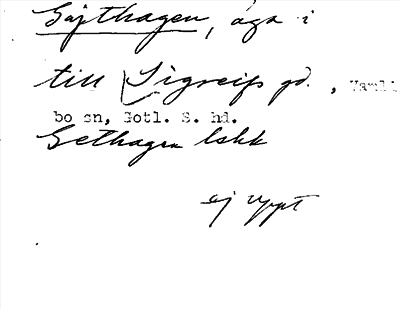 Gajthagen, äga i
till Sigreifs gd. , Vamli
bo sn, Gotl. S. hd.
Gethagen lskk
ej uppt